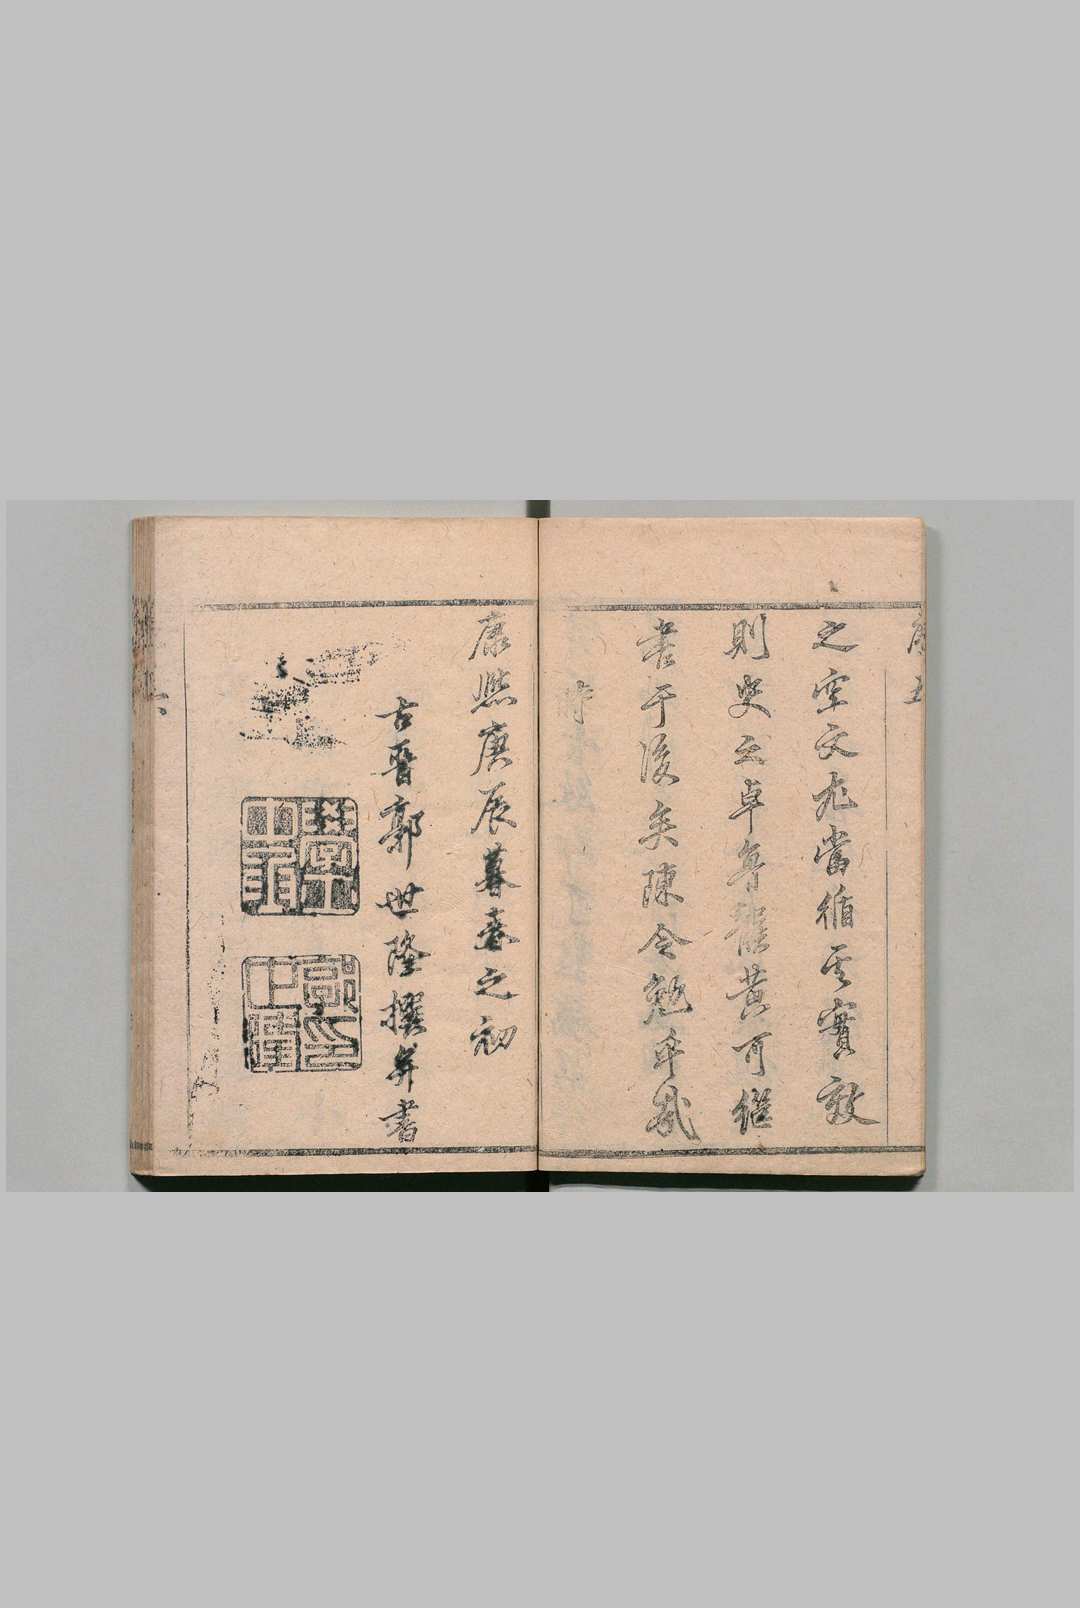 之空文尤當循其實效
則史云卓魯龔黃可繼
書于後矣陳令勉乎哉
康熙庚辰暮春之初
古晉郭世隆撰并書